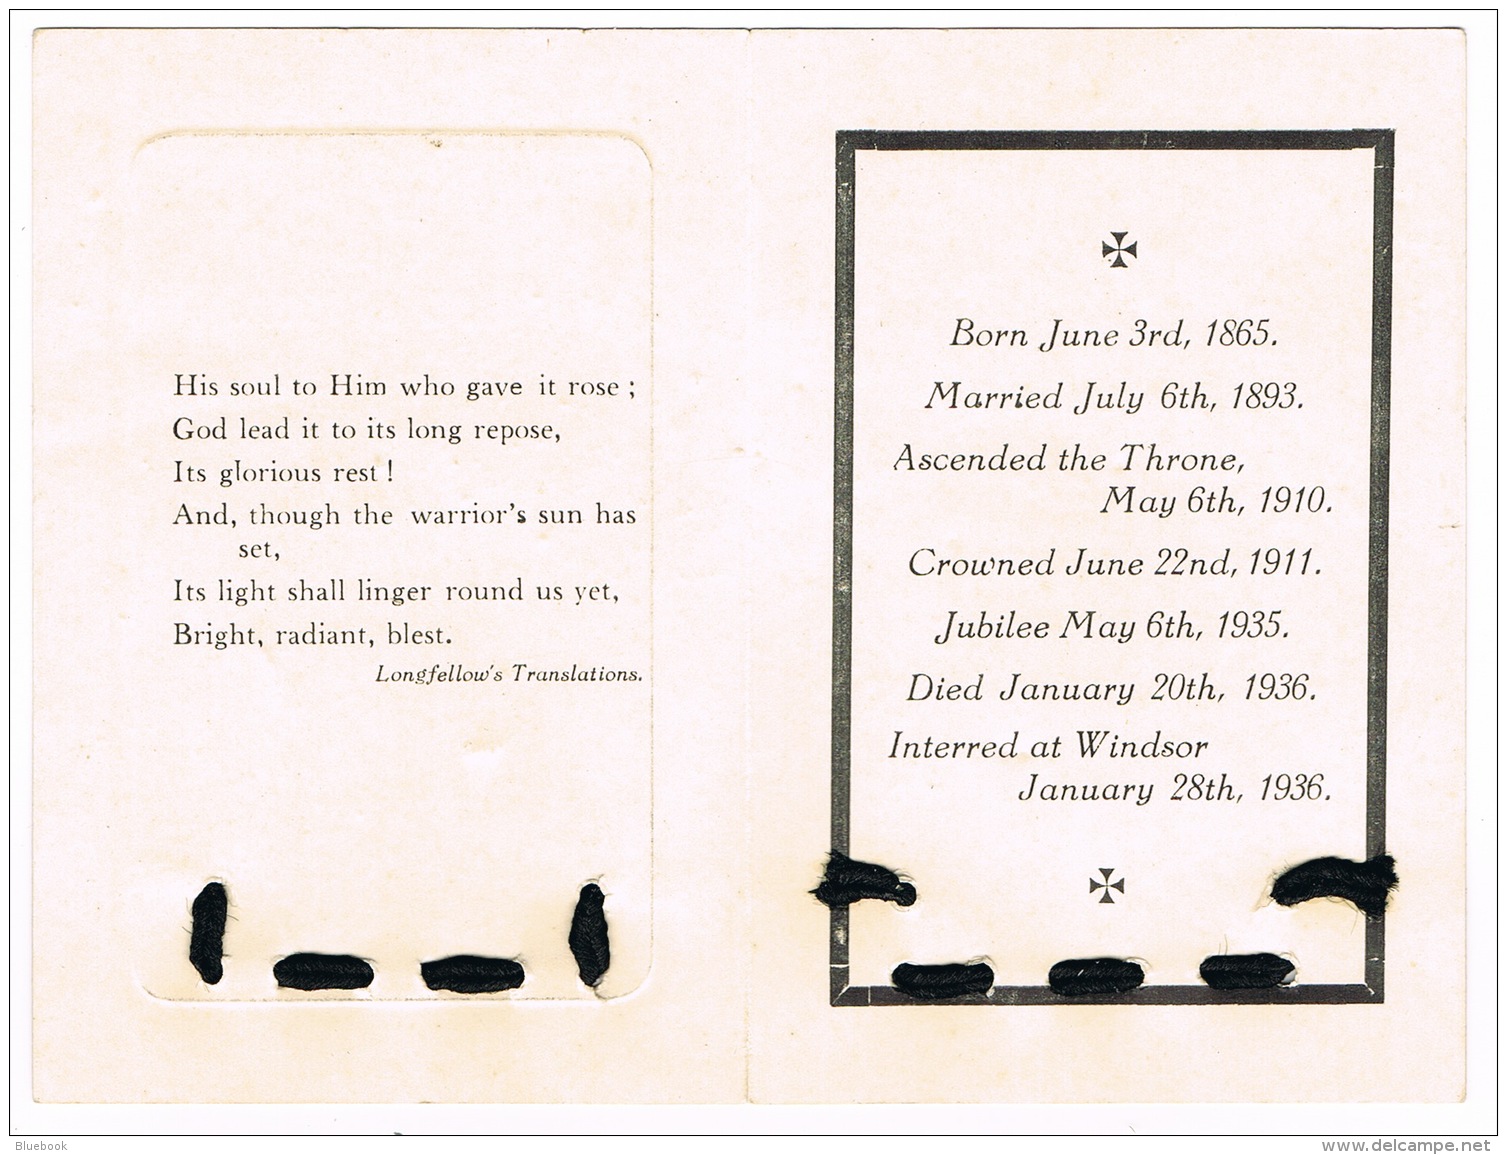 His soul to Him who gave it rose ;
God lead it to its long repose,
Its glorious rest !
And, though the warrior's sun has
set,
Its light shall linger round us yet,
Bright, radiant, blest.
Longfellow's Translations.
Born June 3rd, 1865.
Married July 6th, 1893.
Ascended the Throne,
May 6th, 1910.
Crowned June 22nd, 1911.
Jubilee May 6th, 1935.
Died January 20th, 1936.
Interred at Windsor
January 28th, 1936.
Bluebook
www.delcampe.net